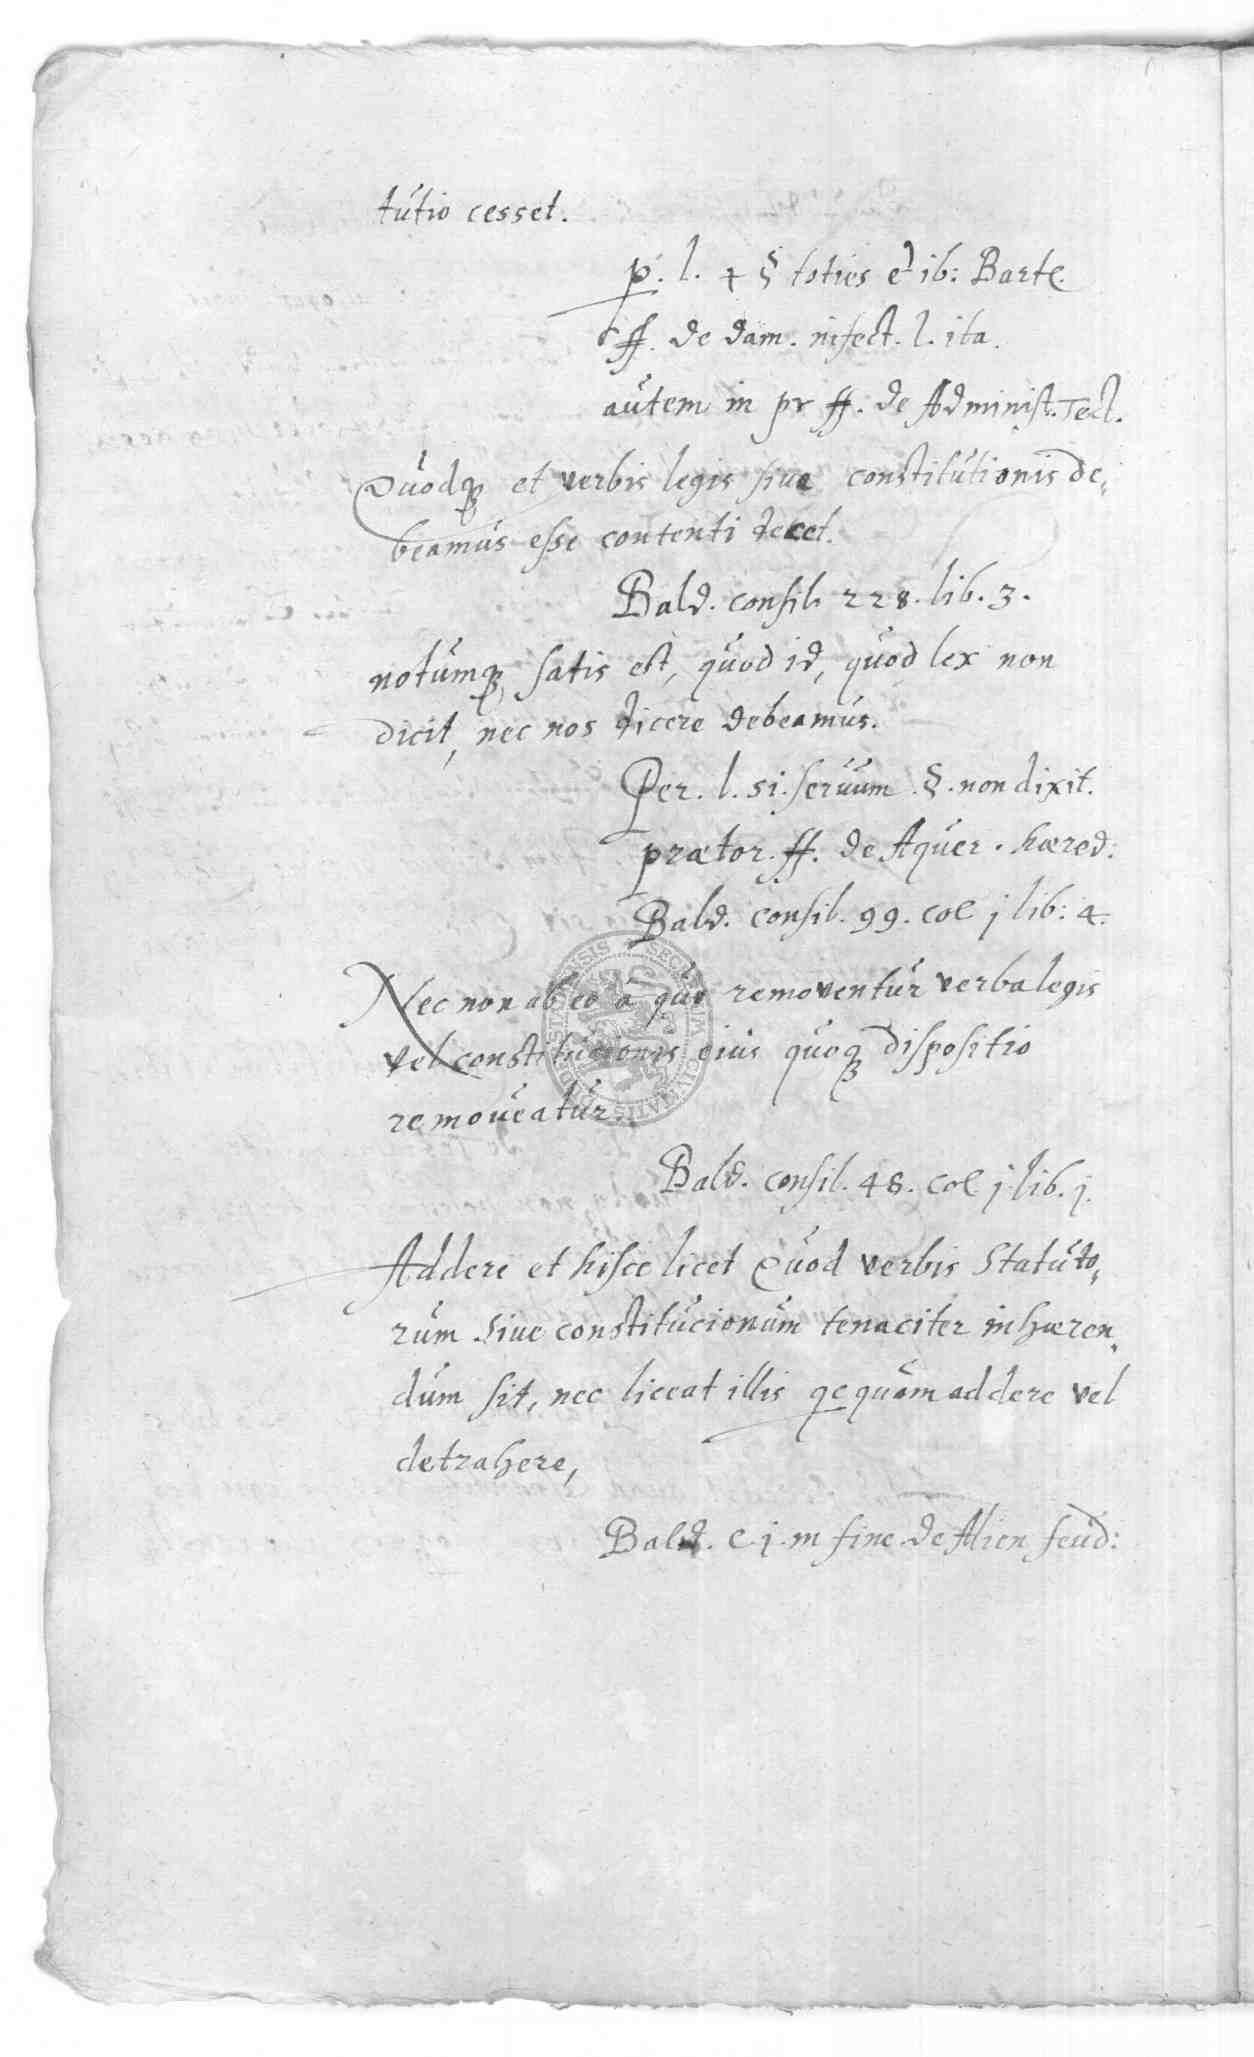 tutio cesset.
p. l. 4 § toties et ib: Barte.
ff. de dam. infect. l. ita.
autem in pr ff. de Administ. Tect.
Quodq; et verbis legis sive constitutionis de„
beamus esse contenti decet.
Bald. consil. 228. lib. 3.
notumq; satis est, quod id, quod lex non
dicit, nec nos dicere debeamus.
Per. l. si. servum. §. non dixit.
prætor. ff. de Aquer. hæred:
Bald. consil. 99. col j lib: 4.
Nec non ab eo à quo removentur verba legis
vel constitucionis eius quoq; dispositio
removeatur.
Bald. consil. 48. col j lib. j.
Addere et hisce licet Quod verbis Statuto„
rum sive constitucionum tenaciter inhæren„
dum sit, nec liceat illis qcquam addere vel
detrahere,
Bald. c. j. in fine de Alien feud: